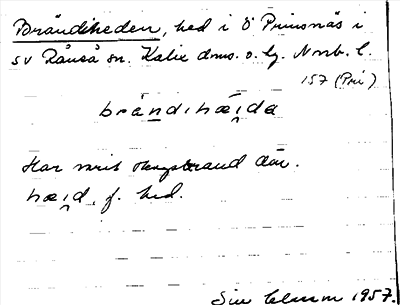 Brändiheden, hed i Ö Prinsnäs i
sv Råneå sn. Kalix dms. o. lg. Norrb. l.
157 (Pri)
brändihæida
Har varit skogsbrand där.
hæid, f. hed.
Siw 1957.